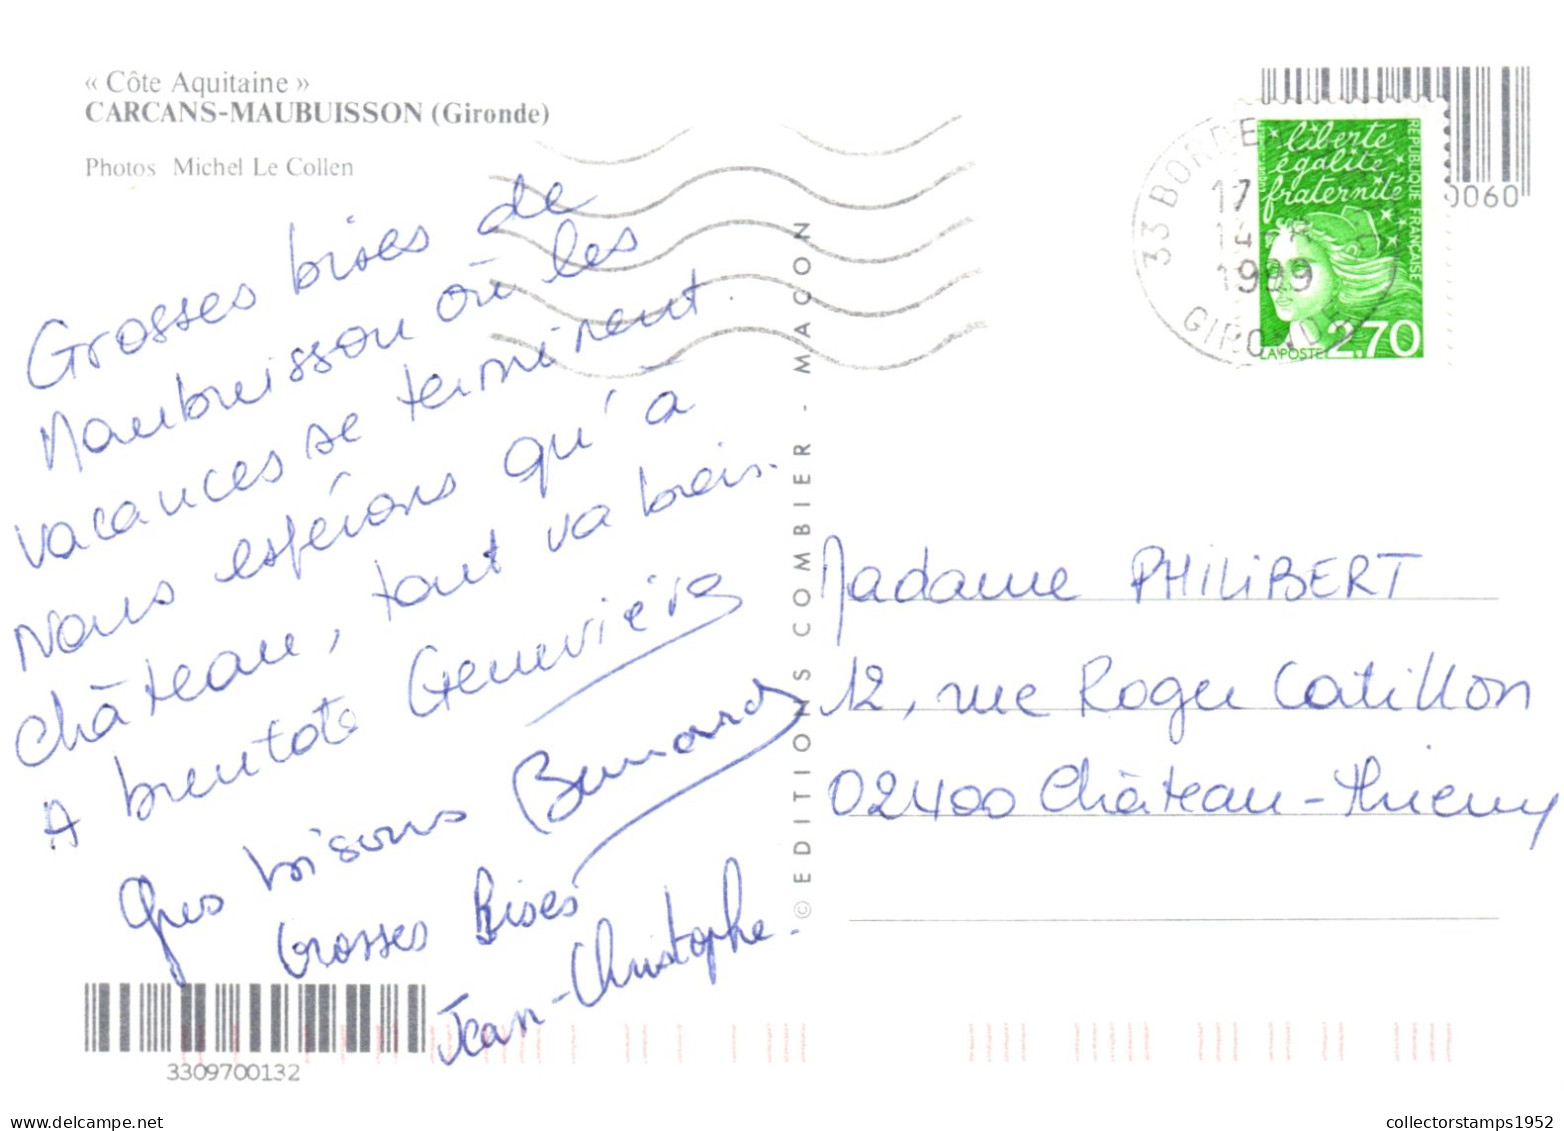 « Côte Aquitaine »
CARCANS-MAUBUISSON (Gironde)
Photos Michel Le Collen
Grosses bises de
Maubuisson où les
vacances se terminent.
Nous espérons qu'à
château, tout va bien.
A bientôt Geneviève
Gros bisous Bernard
Grosses Bises
Jean-Christophe.
3309700132
© EDITIONS COMBIER - MACON
0060
33 BORDE
17
14
1999
GIRONDE
liberté
égalité
fraternité
REPUBLIQUE FRANÇAISE
LA POSTE 2,70
Madame PHILIBERT
12, rue Roger Catillon
02400 Château-Thierry
www.delcampe.net
collectorstamps1952